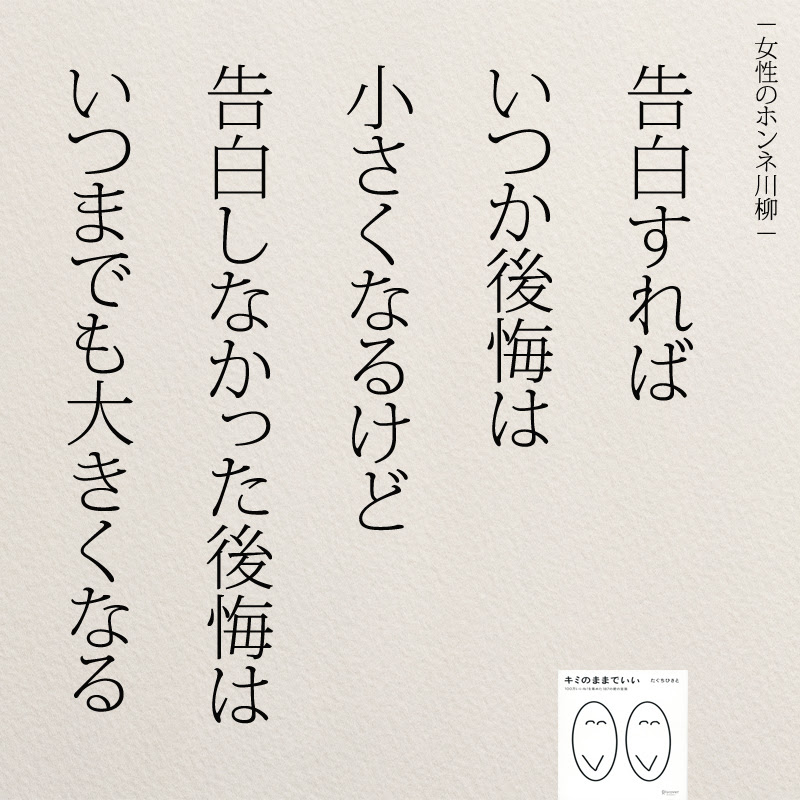 ―女性のホンネ川柳―
告白すれば
いつか後悔は
小さくなるけど
告白しなかった後悔は
いつまでも大きくなる
キミのままでいい
たぐちひさと